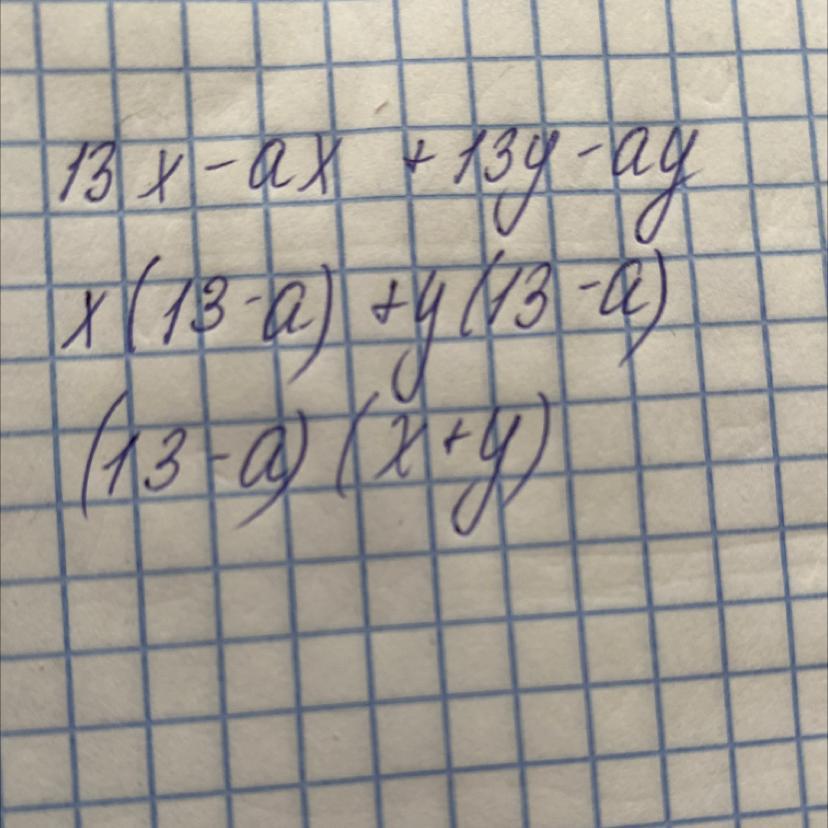 13x-ax +13y-ay
x(13-a) +y(13-a)
(13-a)(x+y)